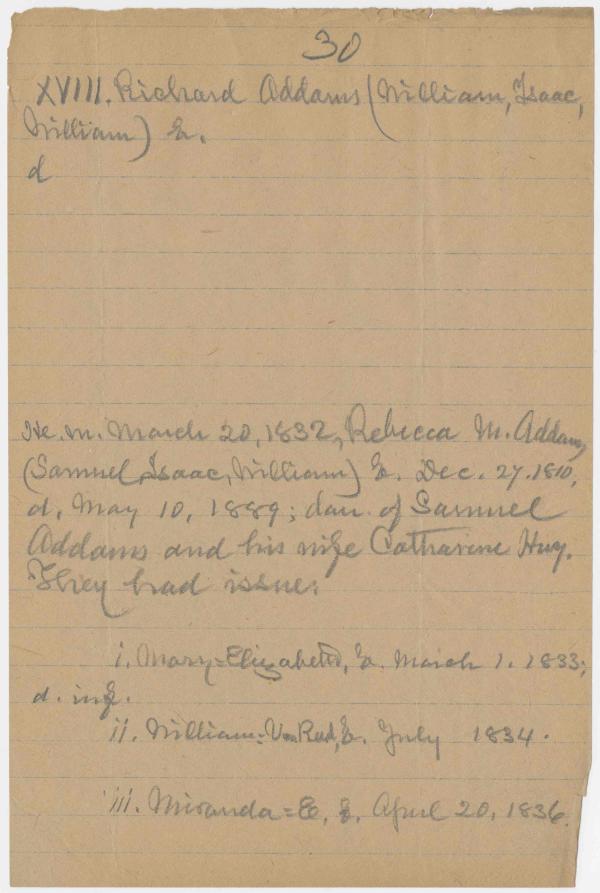 30
XVIII. Richard Addams (William, Isaac,
William) b.
d
He m. March 20, 1832, Rebecca M. Addams
(Samuel, Isaac, William) b. Dec. 27. 1810,
d. May 10, 1889; dau. of Samuel
Addams and his wife Catharine Huy.
They had issue:
i. Mary=Elizabeth, b. March 1. 1833;
d. inf.
ii. William= b. July 1834.
iii. Miranda=E, b. April 20, 1836.